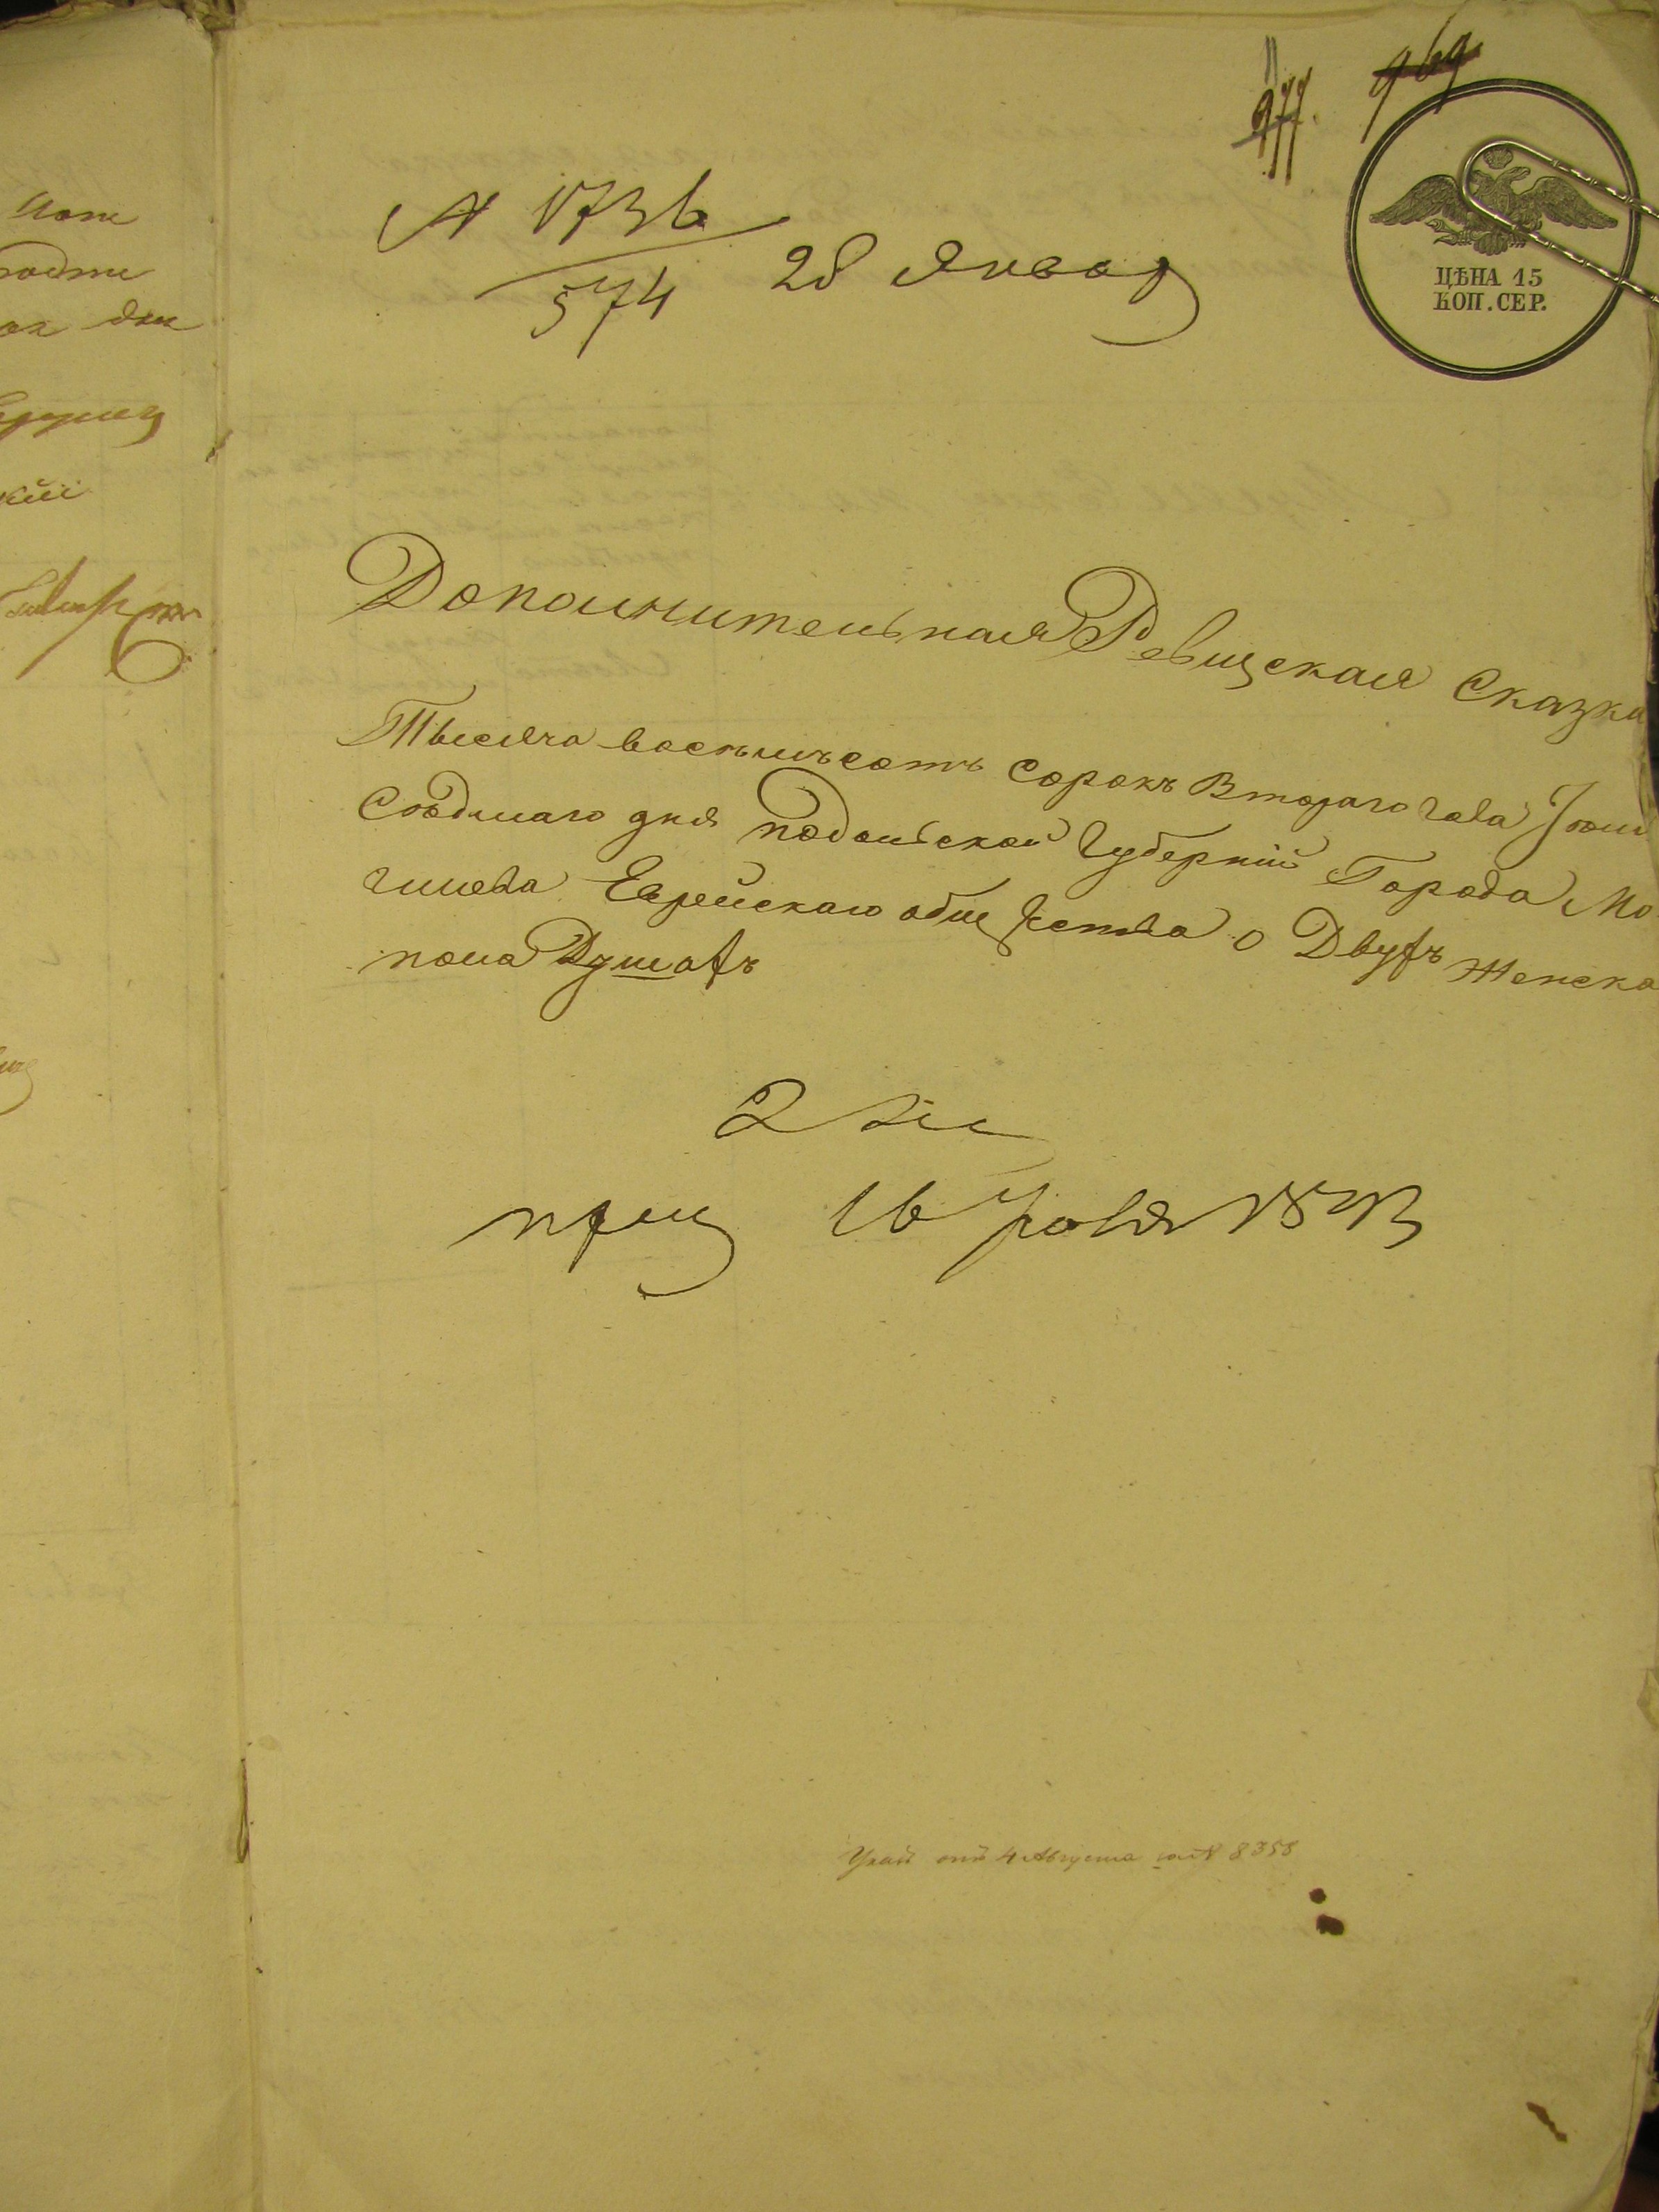 969
977.
ЦѢНА 15
КОП. СЕР.
№ 1736
574
28 Январ
Дополнительная Ревизская Сказка
Тысяча восемьсотъ Сорокъ Втораго года Іюн
Сѣдмаго дня Подольской Губерніи Города Мо
гилева Еврейскаго общества о Двухъ Женска
пола Душахъ
2
16
Указ отъ 4 Августа за № 8358